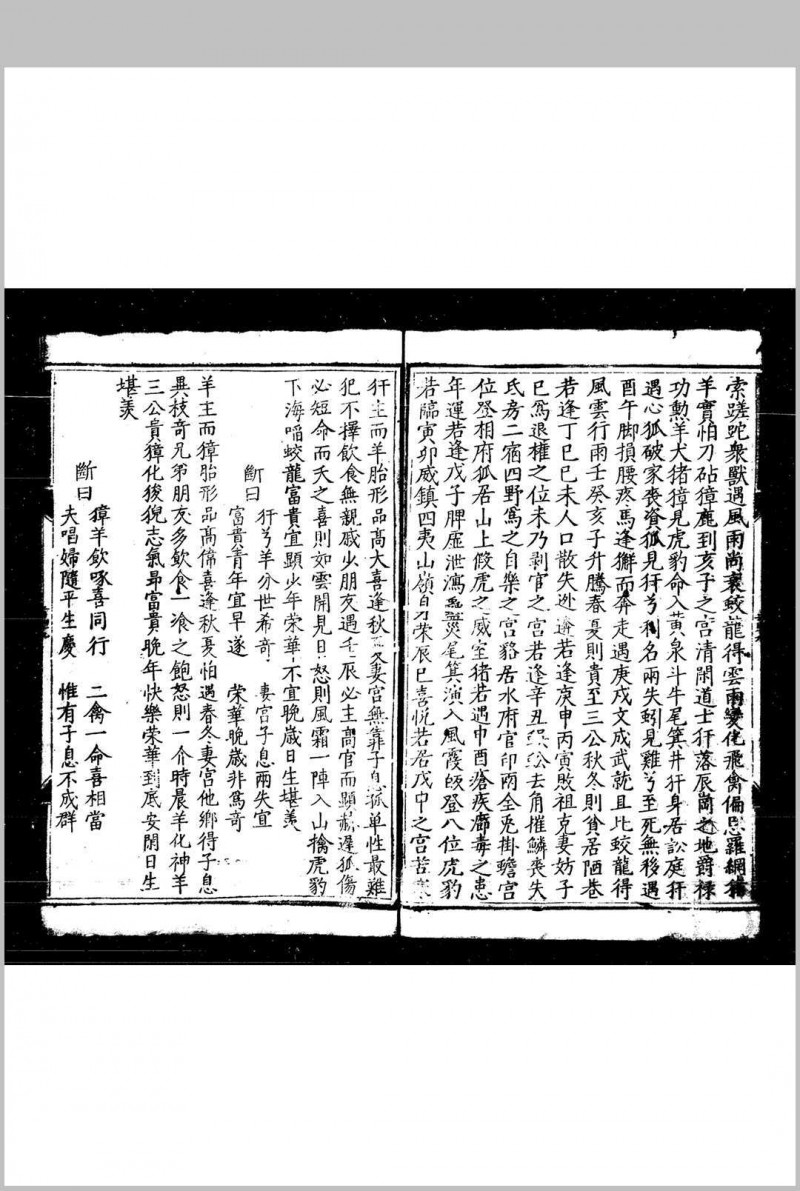 索蹉跎衆獸遇風雨尚衰蛟龍得雲雨變化飛禽偏忌羅網猪
羊實怕刀砧獐鹿到亥子之宮清閑道士犴落辰崗之地爵祿
功勲羊犬猪獐見虎豹命入黄泉斗牛尾箕井犴身居訟庭犴
遇心狐破家喪資狐見犴兮利名兩失蚓見雞兮至死無移遇
酉午脚損腰疼馬逢獬而奔走遇庚戌文成武就且比蛟龍得
風雲行雨壬癸亥子升騰春夏則貴至三公秋冬則貧居陋巷
若逢丁巳巳未人口散失逃 若逢庚申丙寅敗祖克妻妨子
巳爲退權之位未乃剥官之宮若逢辛丑 去角摧鱗喪失
氐房二宿四野爲之自樂之宮貉居水府官印兩全兎掛蟾宮
位登相府狐居山上假虎之威室猪若遇巾酉瘡疾癤毒之患
年運若逢戊子脾虚泄瀉 尾箕演入風霞 登八位虎豹
若臨寅卯威鎮四夷山嶺 榮辰巳喜悦若居戊巾之宮苦寒
犴主而羊胎形品高大喜逢秋 妻宮無靠子 孤单性最難
犯不擇飲食無親戚少朋友遇壬辰必主高官而顯赫遲狐傷
必短命而夭之喜則如雲開見日怒則風霜一陣入山擒虎豹
下海啗蛟龍富貴宜顯少年荣華不宜晩歲日生堪羡
断曰 犴兮羊分世希竒 妻宮子息兩失宜
富貴青年宜早遂 荣華晩歲非爲竒
羊主而獐胎形品高偉喜逢秋夏怕遇春冬妻宮他鄉得子息
異枝竒兄弟朋友多飲食一飡之飽怒則一介時晨羊化神羊
三公貴獐化後猊志氣昂富貴晩年快樂荣華到底安閑日生
堪羡
斷曰 獐羊飲啄喜同行 二禽一命喜相當
夫唱婦隨平生慶 惟有子息不成群